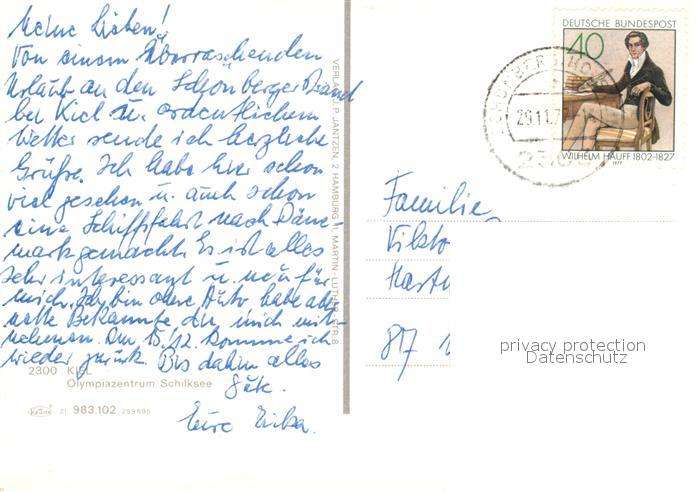 Meine Lieben!
Von einem überraschenden
Urlaub an den Schönberger Strand
bei Kiel u. ordentlichem
Wetter sende ich herzliche
Grüße. Ich habe hier schon
viel gesehen u. auch schon
eine Schiffsfahrt nach Däne-
mark gemacht. Es ist alles
sehr interessant u. neu für
mich. Ich bin ohne Auto habe aber
nette Bekannte die mich mit-
nehmen. Am 15./12. komme ich
wieder zurück. Bis dahin alles
Gute.
Eure Erika.
2300 KIEL
Olympiazentrum Schilksee
Krüger 21 983.102
VERLAG J. P. JANTZEN, 2 HAMBURG MARTIN-LUTHER-STR. 8
DEUTSCHE BUNDESPOST
40
WILHELM HAUFF 1802-1827
1977
29.11.7
Familie
Vikto
Hart
817
privacy protection
Datenschutz